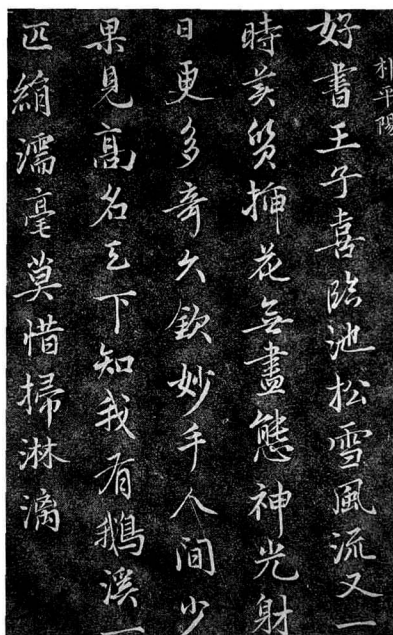 朴平陽
好書王子喜臨池松雪風流又一
時美質揷花無盡態神光射
日更多奇久欽妙手人間少
果見高名天下知我有鵝溪一
匹絹濡毫莫惜掃淋漓